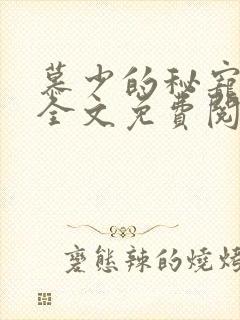 慕少的秘寵
全文免費閱
变態辣的燒烤